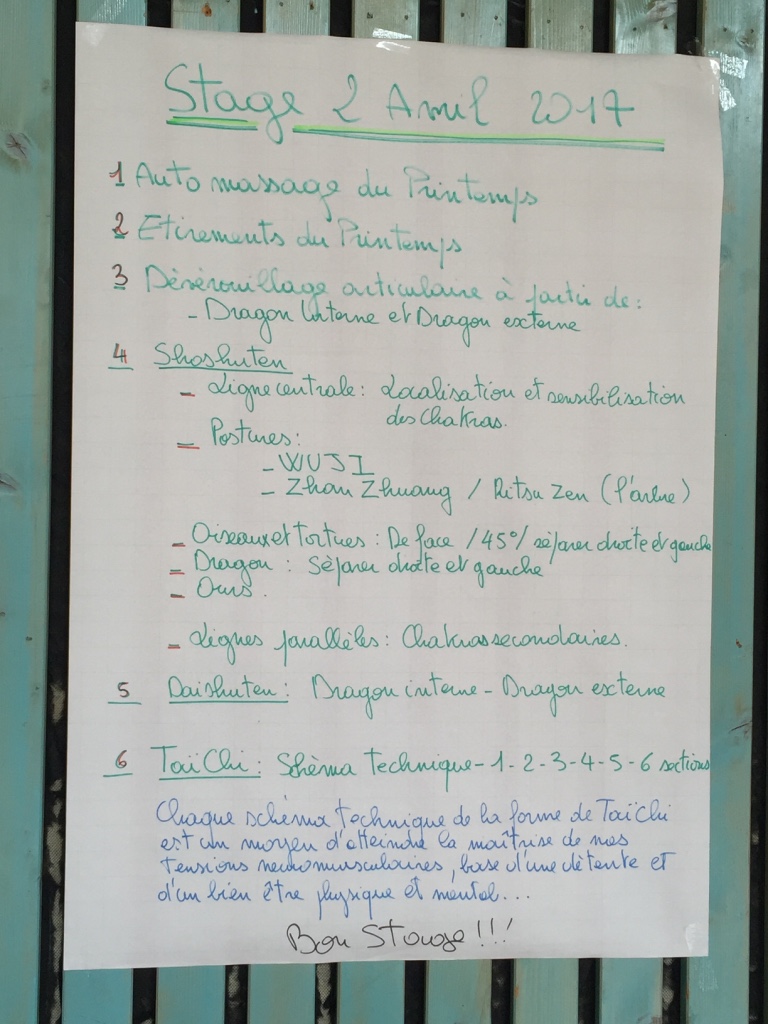 Stage 2 Avril 2017
1 Auto massage du Printemps
2 Etirements du Printemps
3 Dérérouillage articulaire à partir de :
- Dragon Interne et Dragon externe
4 Shoshuten
- Ligne centrale : Localisation et sensibilisation
des Chakras.
- Postures :
- WUJI
- Zhan Zhuang / Ritsu Zen (l'arbre)
- Oiseaux et Tortues : De face / 45°/ séparer droite et gauche
- Dragon : Séparer droite et gauche
- Ours .
- Lignes parallèles : Chakras secondaires.
5 Daishuten : Dragon interne - Dragon externe
6 TaïChi : Schéma technique - 1 - 2 - 3 - 4 - 5 - 6 sections
Chaque schéma technique de la forme de TaïChi
est un moyen d'atteindre la maîtrise de nos
tensions neuromusculaires, base d'une détente et
d'un bien être physique et mental...
Bon Stage !!!